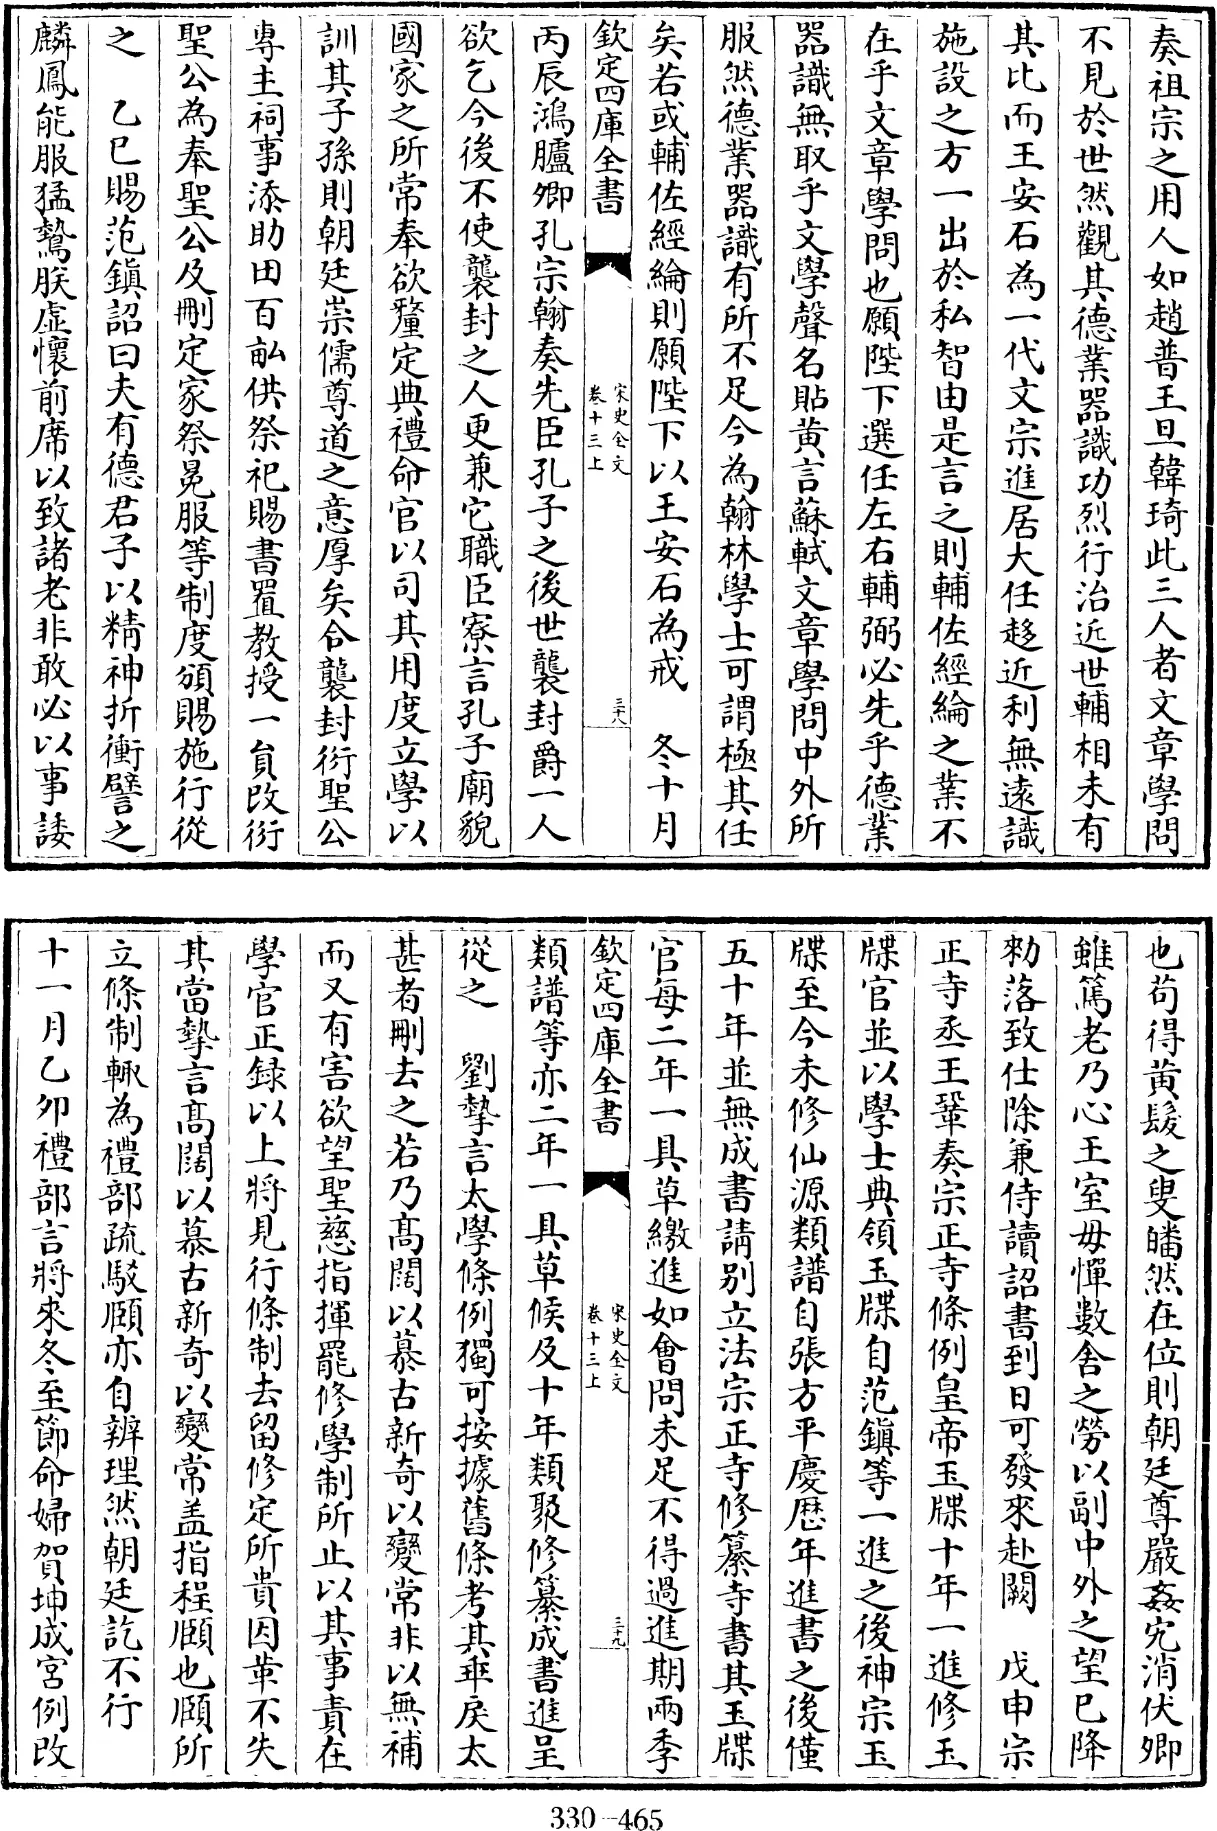 奏祖宗之用人如趙普王旦韓琦此三人者文章學問
不見於世然觀其德業器識功烈行治近世輔相未有
其比而王安石為一代文宗進居大任趍近利無遠識
施設之方一出於私智由是言之則輔佐經綸之業不
在乎文章學問也願陛下選任左右輔弼必先乎德業
器識無取乎文學聲名貼黄言蘇軾文章學問中外所
服然德業器識有所不足今為翰林學士可謂極其任
矣若或輔佐經綸則願陛下以王安石為戒　冬十月
欽定四庫全書
宋史全文
卷十三上
三十八
丙辰鴻臚卿孔宗翰奏先臣孔子之後世襲封爵一人
欲乞今後不使襲封之人更兼它職臣寮言孔子廟貌
國家之所常奉欲釐定典禮命官以司其用度立學以
訓其子孫則朝廷崇儒尊道之意厚矣合襲封衍聖公
專主祠事添助田百畝供祭祀賜書置教授一員改衍
聖公為奉聖公及刪定家祭冕服等制度頒賜施行從
之　乙巳賜范鎮詔曰夫有德君子以精神折衝譬之
麟鳳能服猛鷙朕虛懷前席以致諸老非敢必以事諉
也茍得黄髮之叟皤然在位則朝廷尊嚴姦宄消伏卿
雖篤老乃心王室毋憚數舍之勞以副中外之望已降
勑落致仕除兼侍讀詔書到日可發來赴闕　戊申宗
正寺丞王鞏奏宗正寺條例皇帝玉牒十年一進修玉
牒官並以學士典領玉牒自范鎮等一進之後神宗玉
牒至今未修仙源類譜自張方平慶厯年進書之後僅
五十年並無成書請别立法宗正寺修纂寺書其玉牒
官每二年一具草繳進如會問未足不得過進期兩季
欽定四庫全書
宋史全文
卷十三上
三十九
類譜等亦二年一具草候及十年類聚修纂成書進呈
從之　劉摯言太學條例獨可按據舊條考其乖戾太
甚者刪去之若乃髙闊以慕古新奇以變常非以無補
而又有害欲望聖慈指揮罷修學制所止以其事責在
學官正録以上將見行條制去留修定所貴因革不失
其當摯言髙闊以慕古新奇以變常盖指程頤也頤所
立條制輙為禮部疏駁頤亦自辨理然朝廷訖不行
十一月乙卯禮部言將來冬至節命婦賀坤成宫例改
330-465